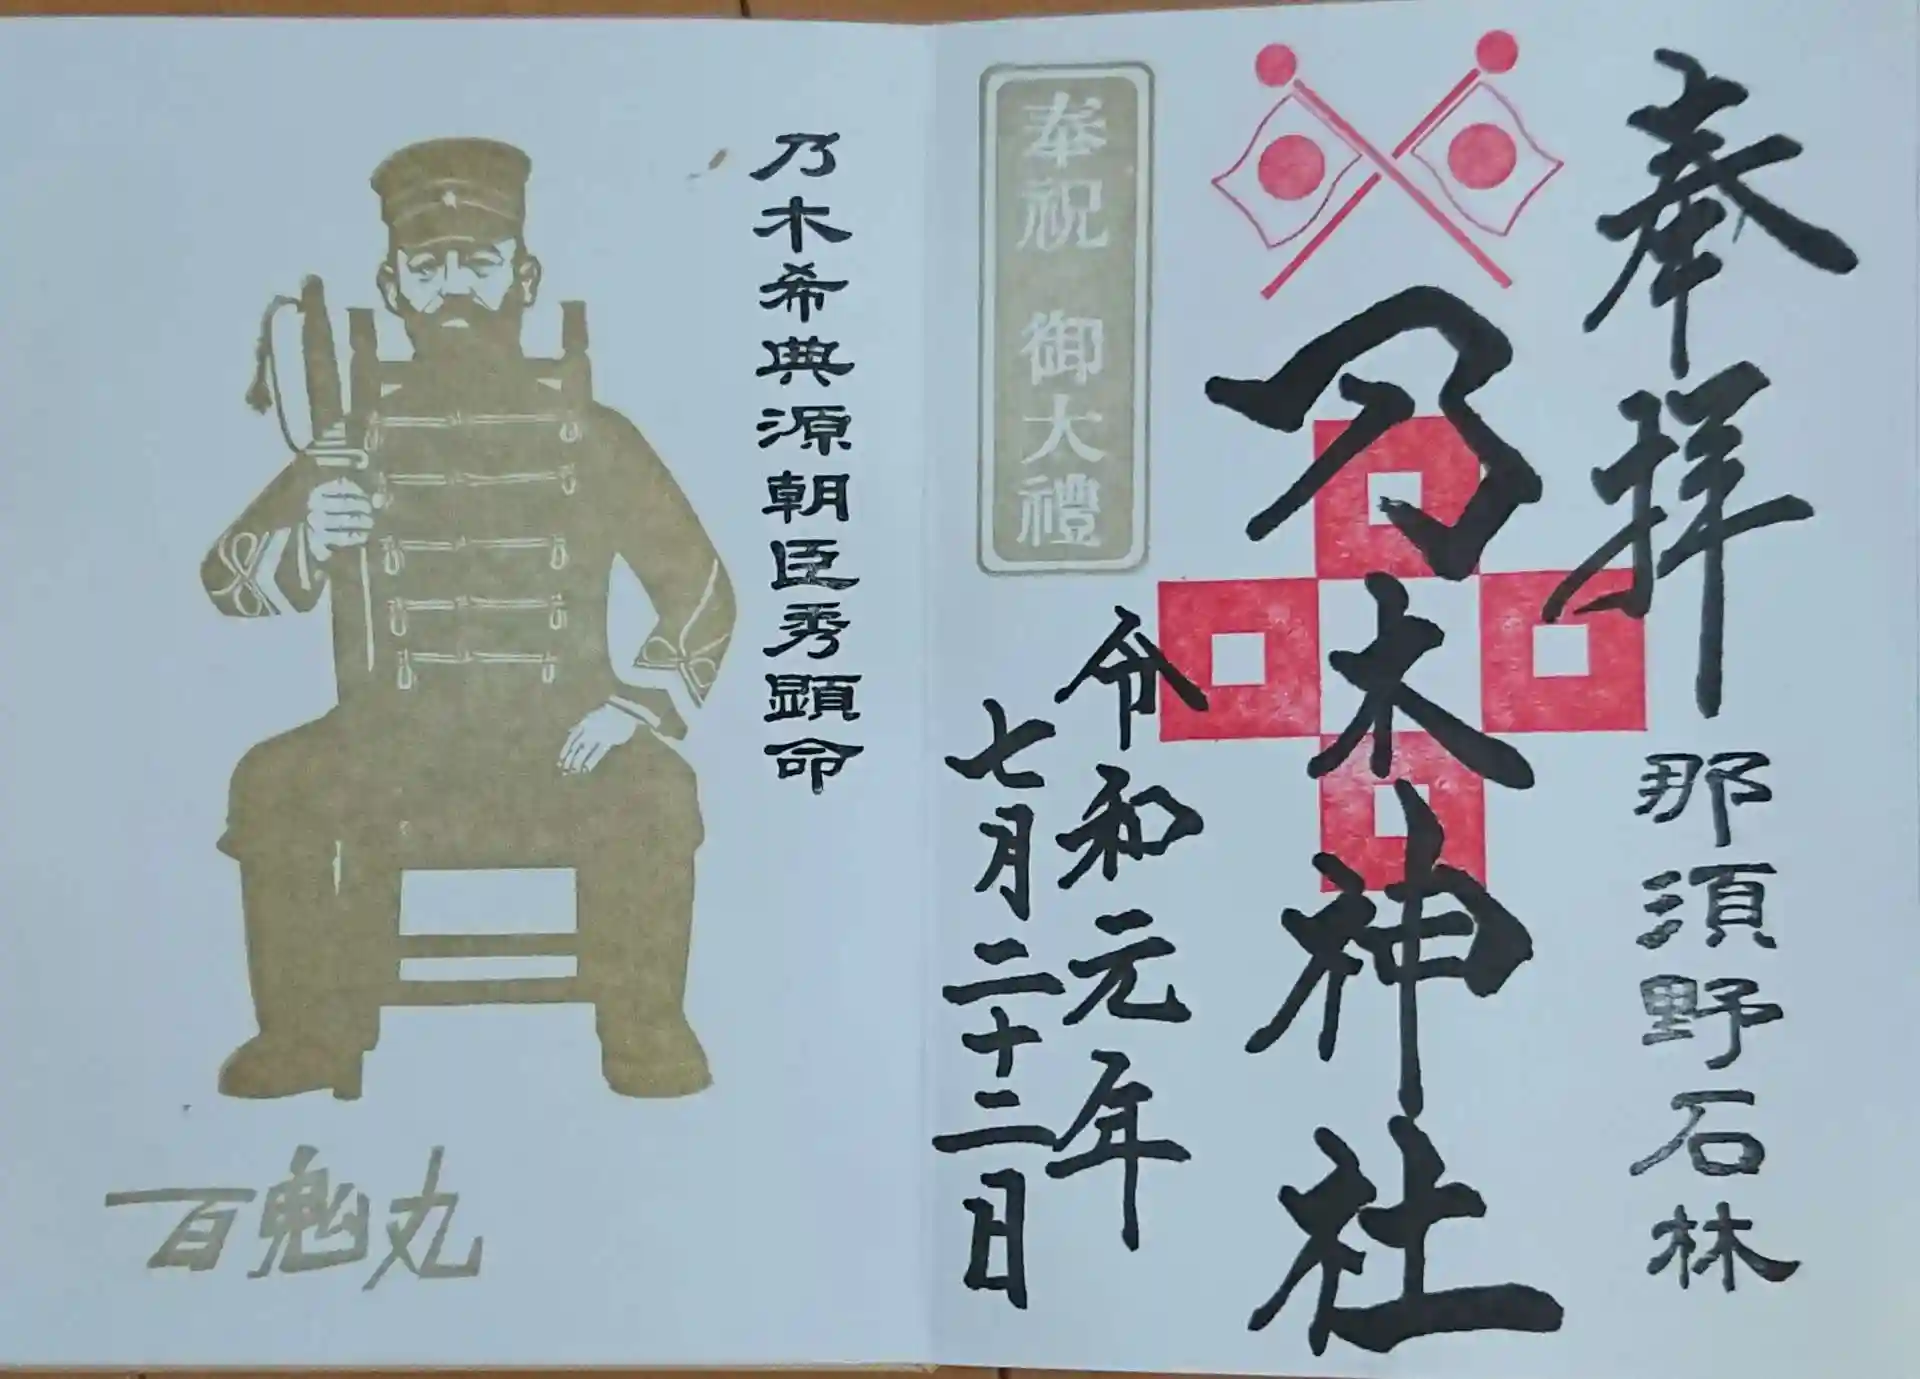 奉拝
那須野石林
乃木神社
奉祝 御大禮
令和元年
七月二十二日
乃木希典源朝臣秀顕命
百鬼丸